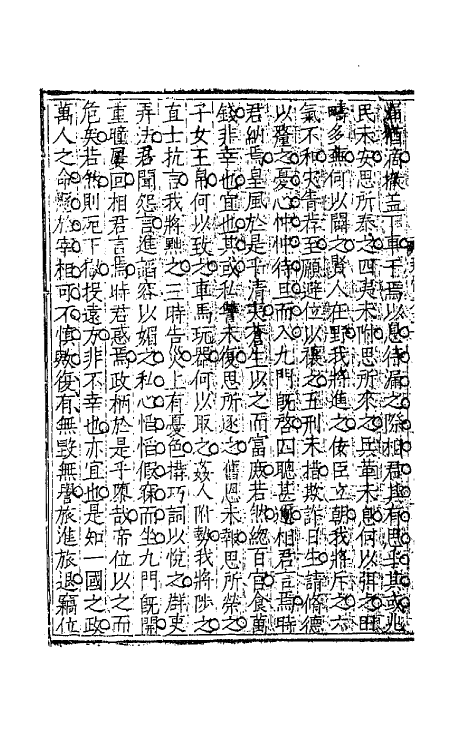 漏猶滴撤盖下車于焉以息待漏之際相君其有思乎其或兆
民未安思所泰之四夷未附思所來之兵革未息何以弭之田
疇多蕪何以闢之賢人在野我將進之佞臣立朝我將斥之六
氣不和災眚荐至願避位以禳之五刑未措欺詐日生請修德
以釐之憂心忡忡待旦而入九門既啓四聰甚邇相君言焉時
君納焉皇風於是乎清夷蒼生以之而富庶若然總百官食萬
錢非幸也宜也其或私讐未復思所逐之舊恩未報思所榮之
子女玉帛何以致之車馬玩器何以取之姦人附勢我將陟之
直士抗言我將黜之三時告災上有憂色搆巧詞以悅之群吏
弄法君聞怨言進諂容以媚之私心慆慆假寐而坐九門既開
重瞳屢回相君言焉時君惑焉政柄於是乎隳哉帝位以之而
危矣若然則死下獄投遠方非不幸也亦宜也是知一國之政
萬人之命懸於宰相可不慎歟復有無毀無譽旅進旅退竊位